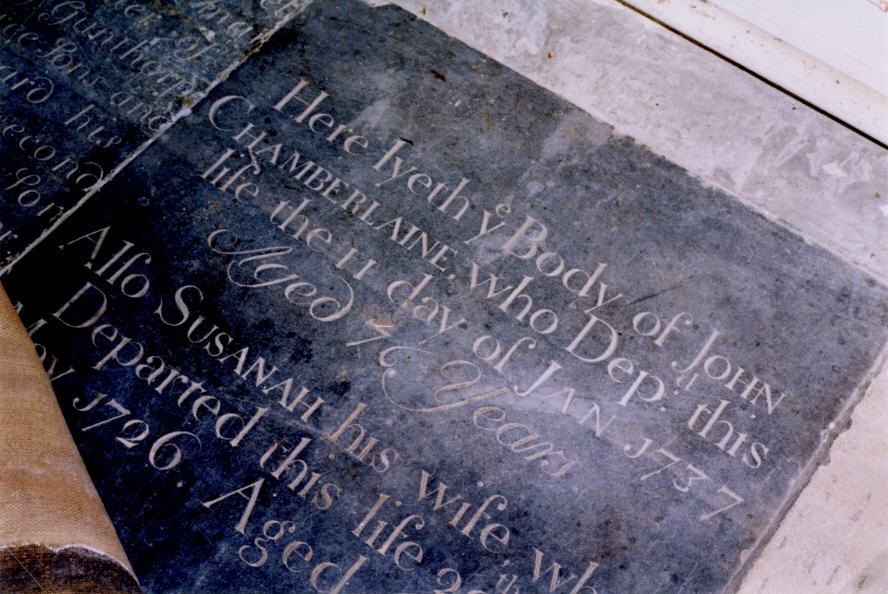 Gunther
and
ard his
econd
for
Here lyeth yͤ Body of JOHN
CHAMBERLAINE, who Dep:ᵈ this
life the 11 day of JAN 1737
Aged Years
Alſo SUSANAH his wife wh
Departed this life
1726. Aged